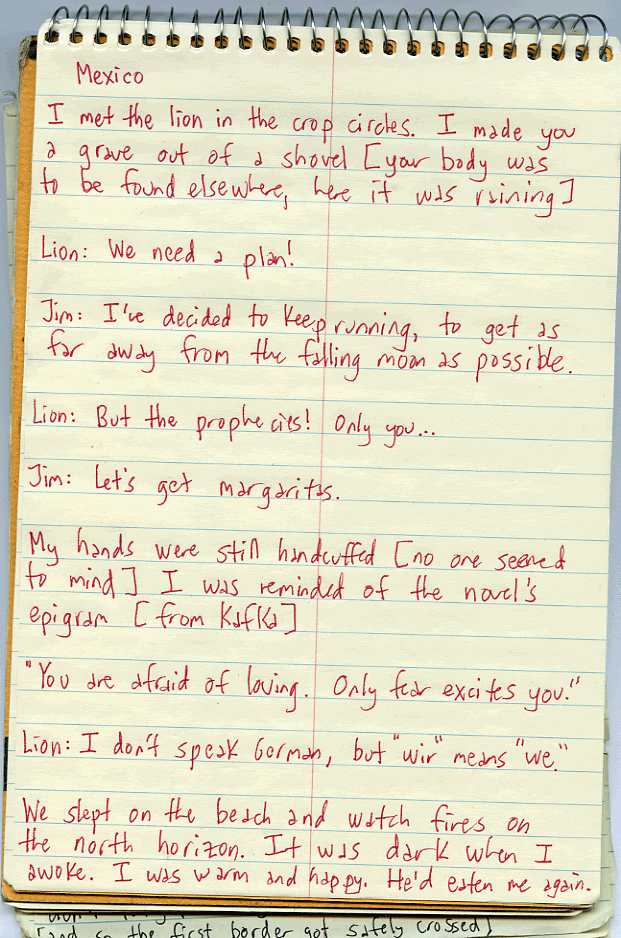 Mexico
I met the lion in the crop circles. I made you
a grave out of a shovel [your body was
to be found elsewhere, here it was raining]
Lion: We need a plan!
Jim: I've decided to keep running, to get as
far away from the falling moon as possible.
Lion: But the prophecies! Only you...
Jim: Let's get margaritas.
My hands were still handcuffed [no one seemed
to mind] I was reminded of the novel's
epigram [from Kafka]
"You are afraid of loving. Only fear excites you."
Lion: I don't speak German, but "wir" means "we."
We slept on the beach and watch fires on
the north horizon. It was dark when I
awoke. I was warm and happy. He'd eaten me again.
[and so the first border got safely crossed]